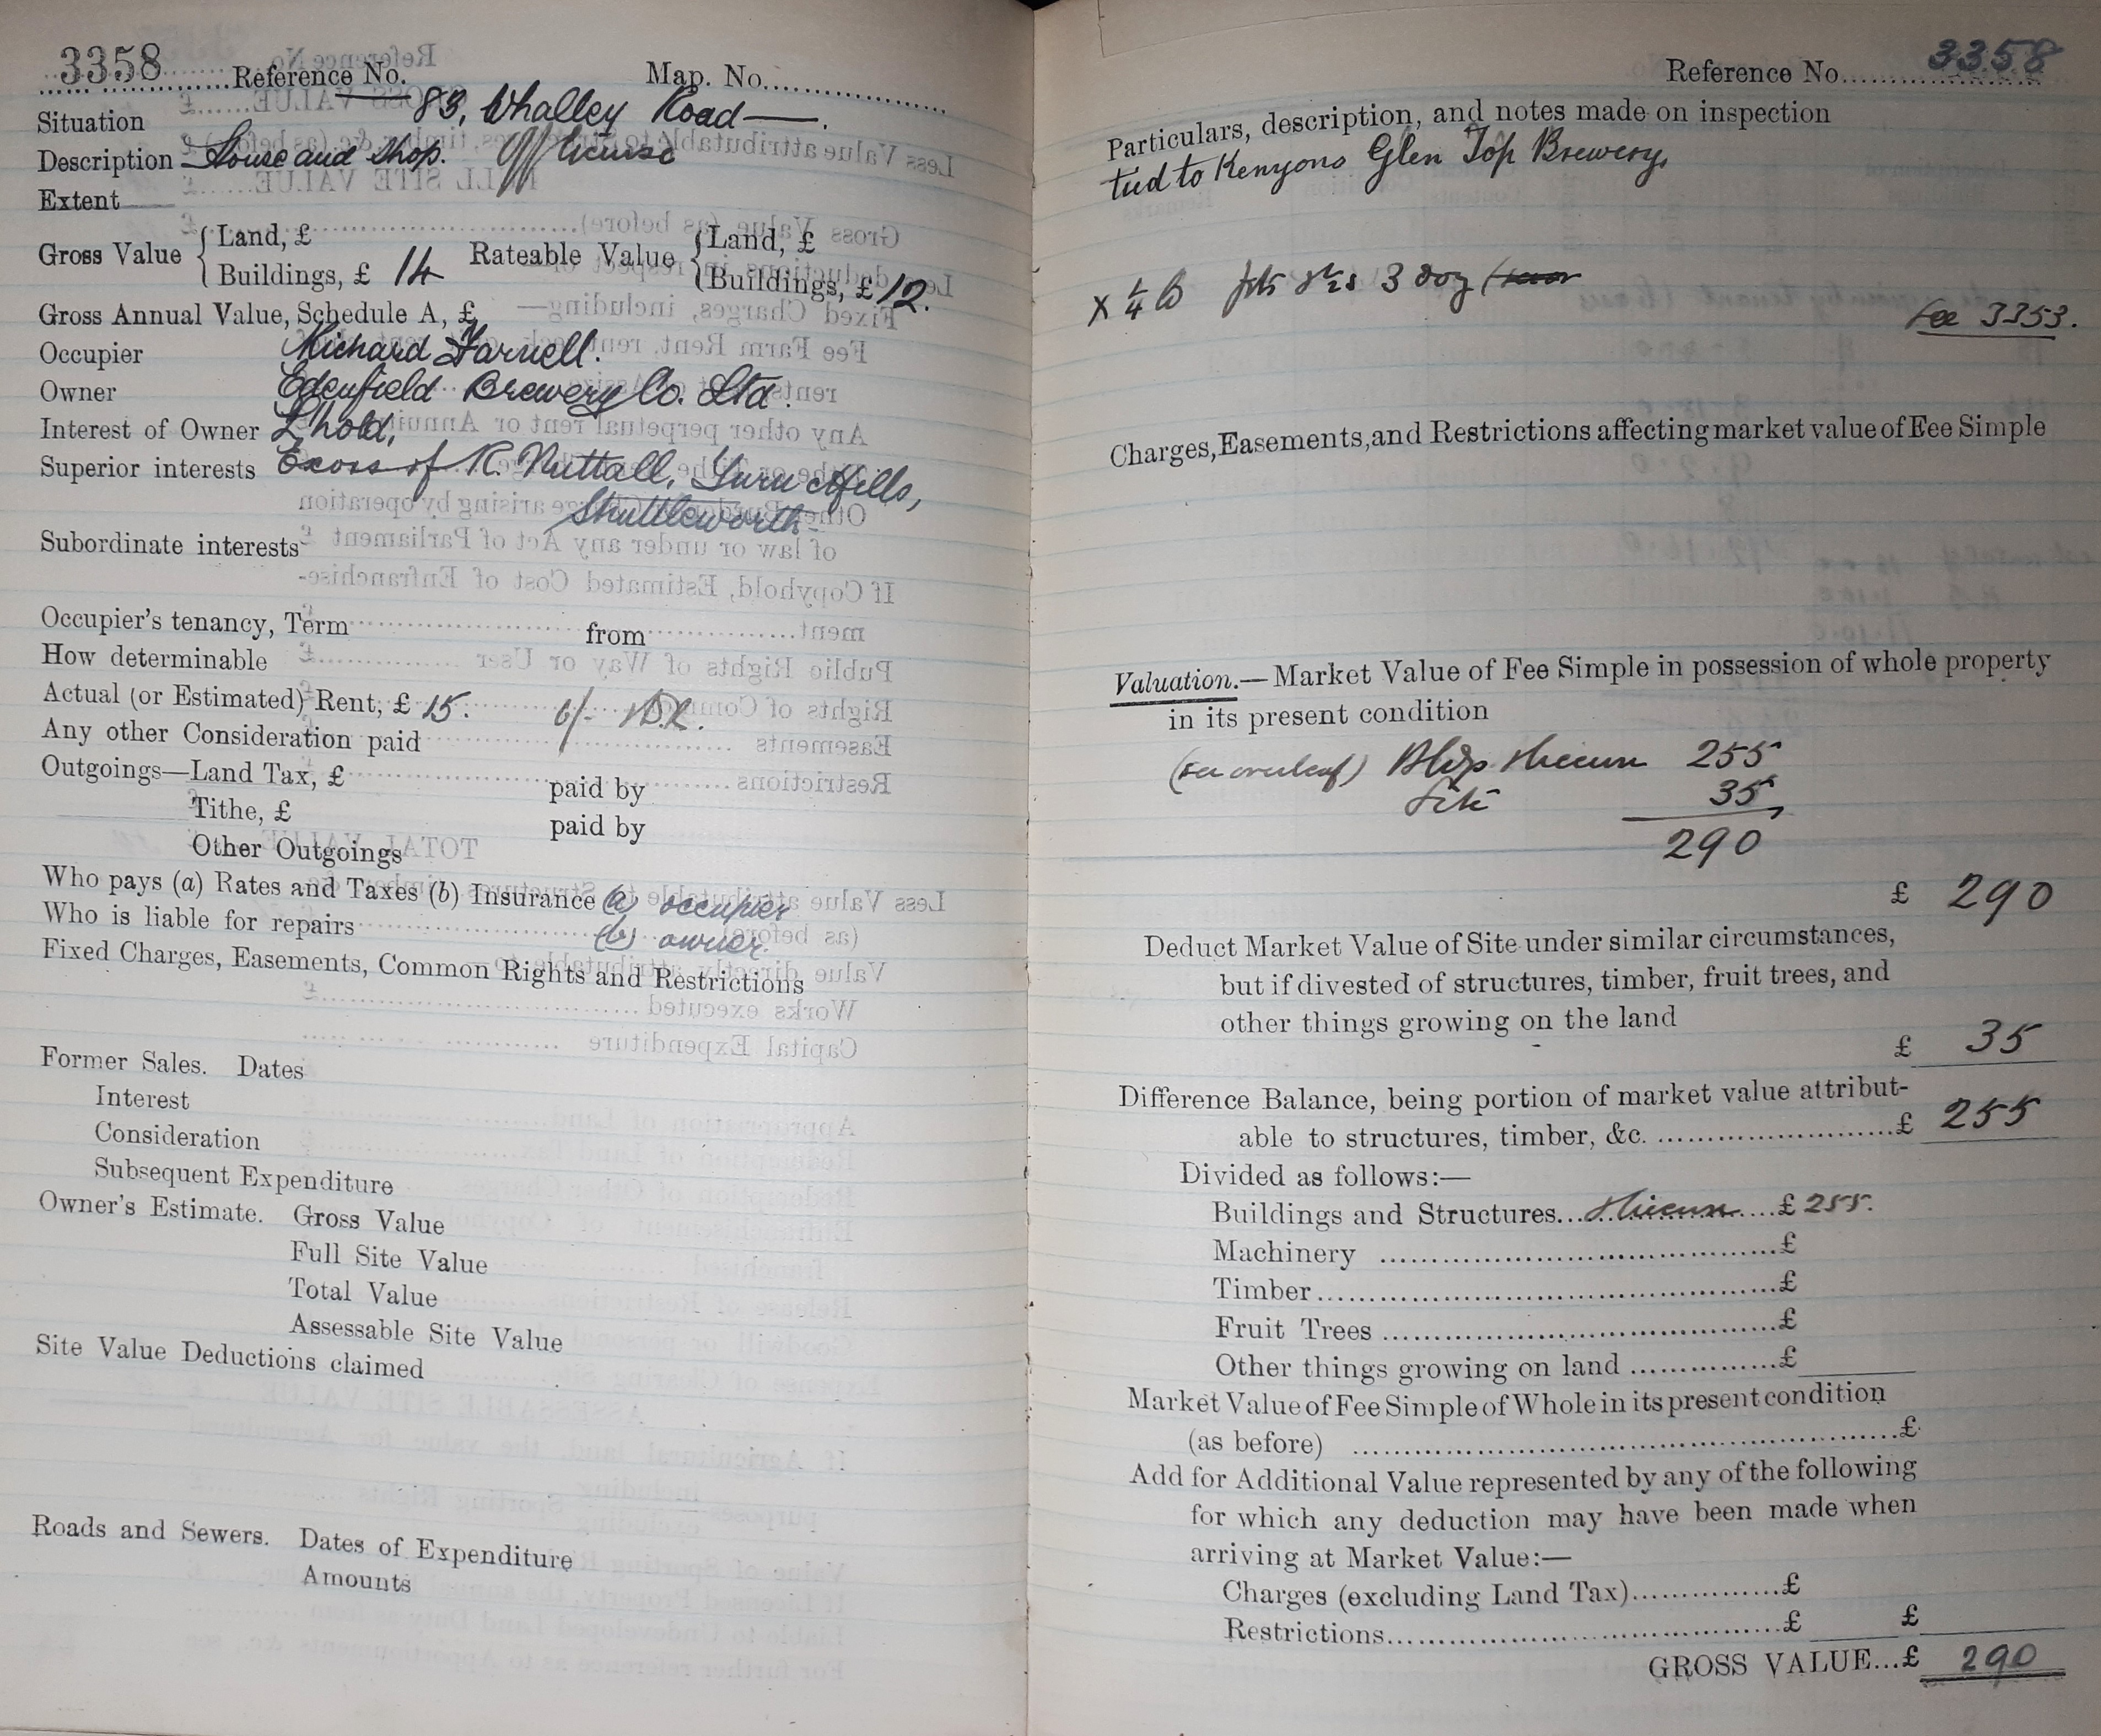 3358 Reference No. Map. No.
Situation 83, Whalley Road —.
Description House and Shop. Off License
Extent
Gross Value { Land, £ Rateable Value { Land, £
Buildings, £ 14 Buildings, £ 12.
Gross Annual Value, Schedule A, £
Occupier Richard Farnell.
Owner Edenfield Brewery Co. Ltd.
Interest of Owner L'hold,
Superior interests Exors of R. Nuttall, Turn Mills,
Shuttleworth
Subordinate interests
Occupier's tenancy, Term from
How determinable
Actual (or Estimated) Rent, £ 15. 6/-
Any other Consideration paid
Outgoings—Land Tax, £ paid by
Tithe, £ paid by
Other Outgoings
Who pays (a) Rates and Taxes (b) Insurance (a) occupier
Who is liable for repairs (b) owner.
Fixed Charges, Easements, Common Rights and Restrictions
Former Sales. Dates
Interest
Consideration
Subsequent Expenditure
Owner's Estimate. Gross Value
Full Site Value
Total Value
Assessable Site Value
Site Value Deductions claimed
Roads and Sewers. Dates of Expenditure
Amounts
Reference No. 3358
Particulars, description, and notes made on inspection
tied to Kenyons Glen Top Brewery,
See 3353.
Charges, Easements, and Restrictions affecting market value of Fee Simple
Valuation.—Market Value of Fee Simple in possession of whole property
in its present condition
(see overleaf) Bldgs & licence 255
Site 35
290
£ 290
Deduct Market Value of Site under similar circumstances,
but if divested of structures, timber, fruit trees, and
other things growing on the land
£ 35
Difference Balance, being portion of market value attribut-
able to structures, timber, &c. £ 255
Divided as follows:—
Buildings and Structures... & licence £ 255.
Machinery £
Timber £
Fruit Trees £
Other things growing on land £
Market Value of Fee Simple of Whole in its present condition
(as before) £
Add for Additional Value represented by any of the following
for which any deduction may have been made when
arriving at Market Value:—
Charges (excluding Land Tax) £
Restrictions £ £
GROSS VALUE...£ 290